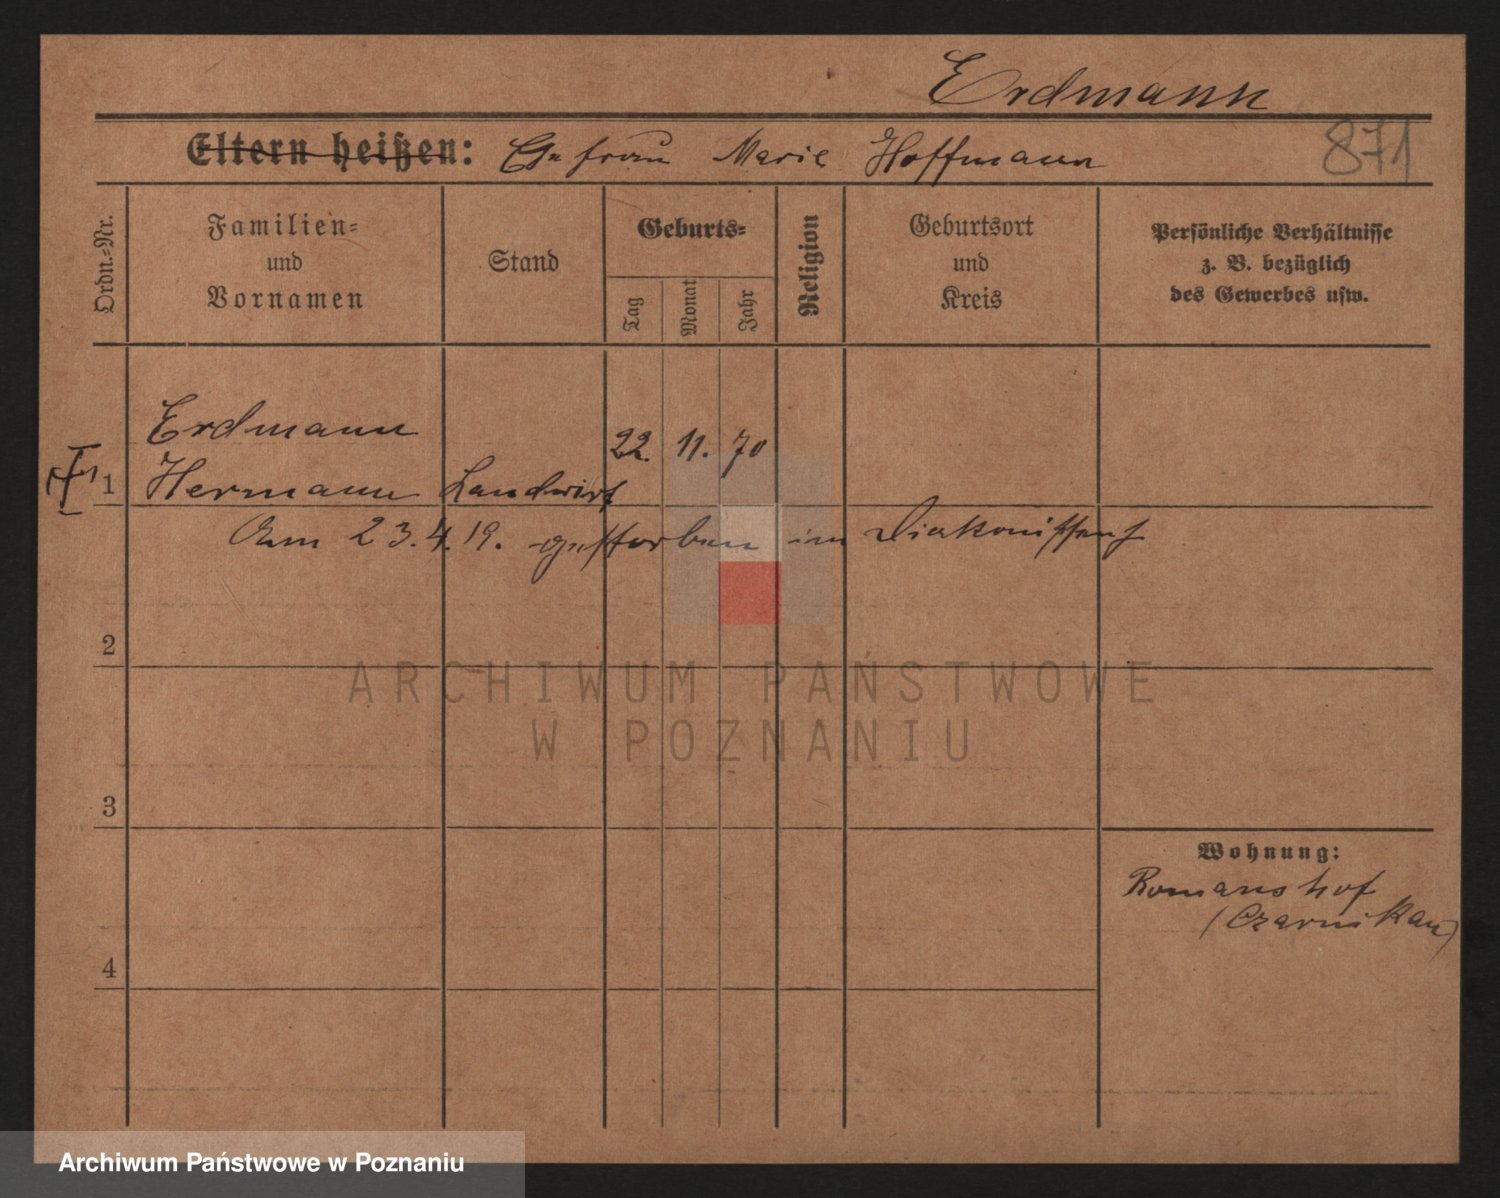 Erdmann
Eltern heißen: Ehefrau Marie Hoffmann 871
Ordn.-Nr.
Familien-
und
Vornamen
Stand
Geburts-
Tag
Monat
Jahr
Religion
Geburtsort
und
Kreis
Persönliche Verhältnisse
z. B. bezüglich
des Gewerbes usw.
Erdmann
22. 11. 70
1 Hermann Landwirt
Am 23.4.19. gestorben im
2
ARCHIWUM PAŃSTWOWE
W POZNANIU
3
Wohnung:
Romanshof
(Czarnikau)
4
Archiwum Państwowe w Poznaniu